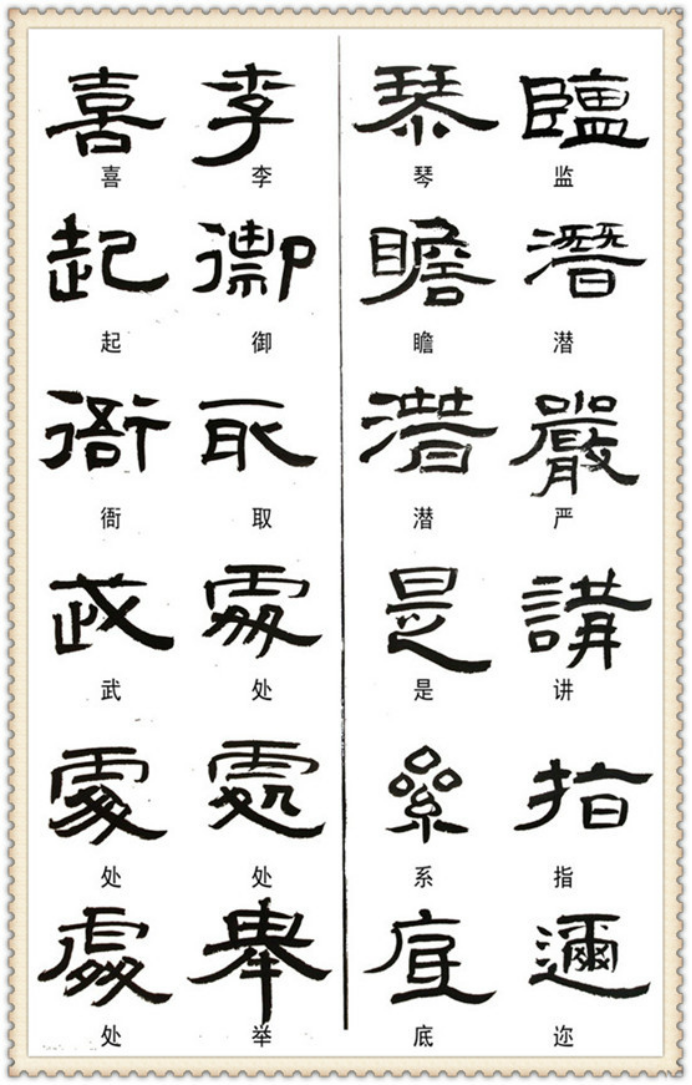 喜 李 琴 監
喜 李 琴 监
起 御 瞻 潛
起 御 瞻 潜
衙 取 潛 嚴
衙 取 潜 严
武 處 是 講
武 处 是 讲
處 處 系 指
处 处 系 指
處 舉 底 邇
处 举 底 迩